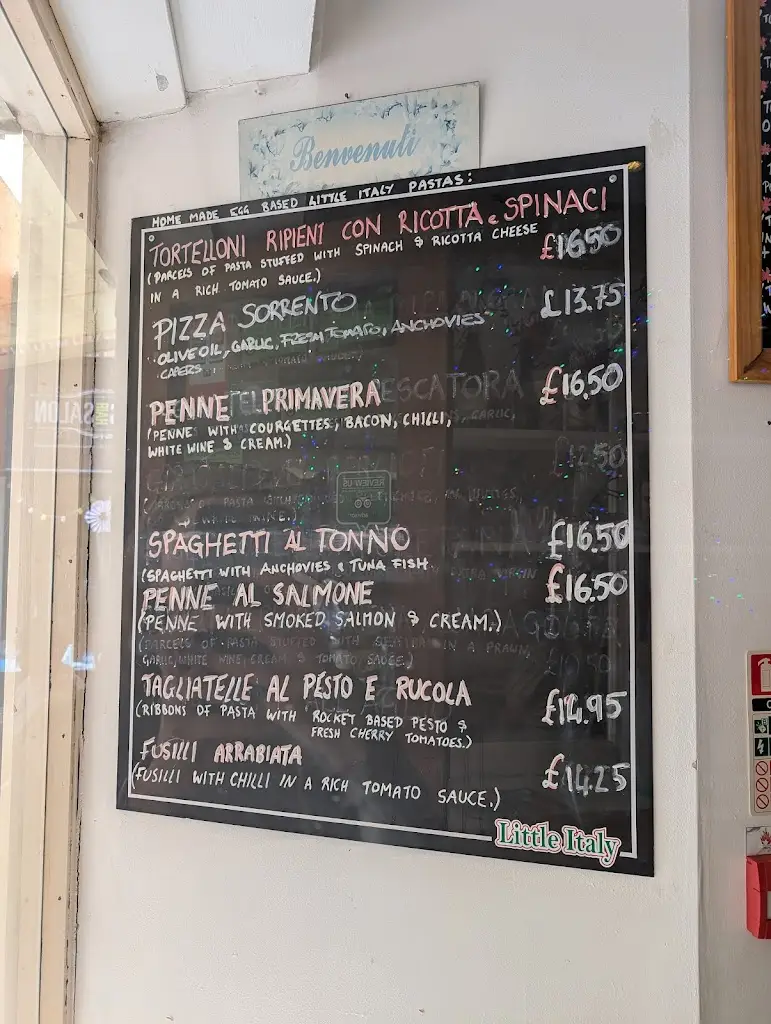 Benvenuti
HOME MADE EGG BASED LITTLE ITALY PASTAS:
TORTELLONI RIPIENI CON RICOTTA e SPINACI £16.50
(PARCELS OF PASTA STUFFED WITH SPINACH & RICOTTA CHEESE
IN A RICH TOMATO SAUCE.)
PIZZA SORRENTO £13.75
OLIVE OIL, GARLIC, FRESH TOMATO, ANCHOVIES
CAPERS
PENNE PRIMAVERA £16.50
(PENNE WITH COURGETTES, BACON, CHILLI,
WHITE WINE & CREAM.)
SPAGHETTI AL TONNO £16.50
(SPAGHETTI WITH ANCHOVIES & TUNA FISH
PENNE AL SALMONE £16.50
(PENNE WITH SMOKED SALMON & CREAM.)
(PARCELS OF PASTA STUFFED WITH IN A PRAWN,
GARLIC, WHITE WINE CREAM & TOMATO SAUCE.)
TAGLIATELLE AL PESTO E RUCOLA £14.95
(RIBBONS OF PASTA WITH ROCKET BASED PESTO &
FRESH CHERRY TOMATOES.)
FUSILLI ARRABIATA £14.25
(FUSILLI WITH CHILLI IN A RICH TOMATO SAUCE.)
Little Italy
SALON
REVIEW US